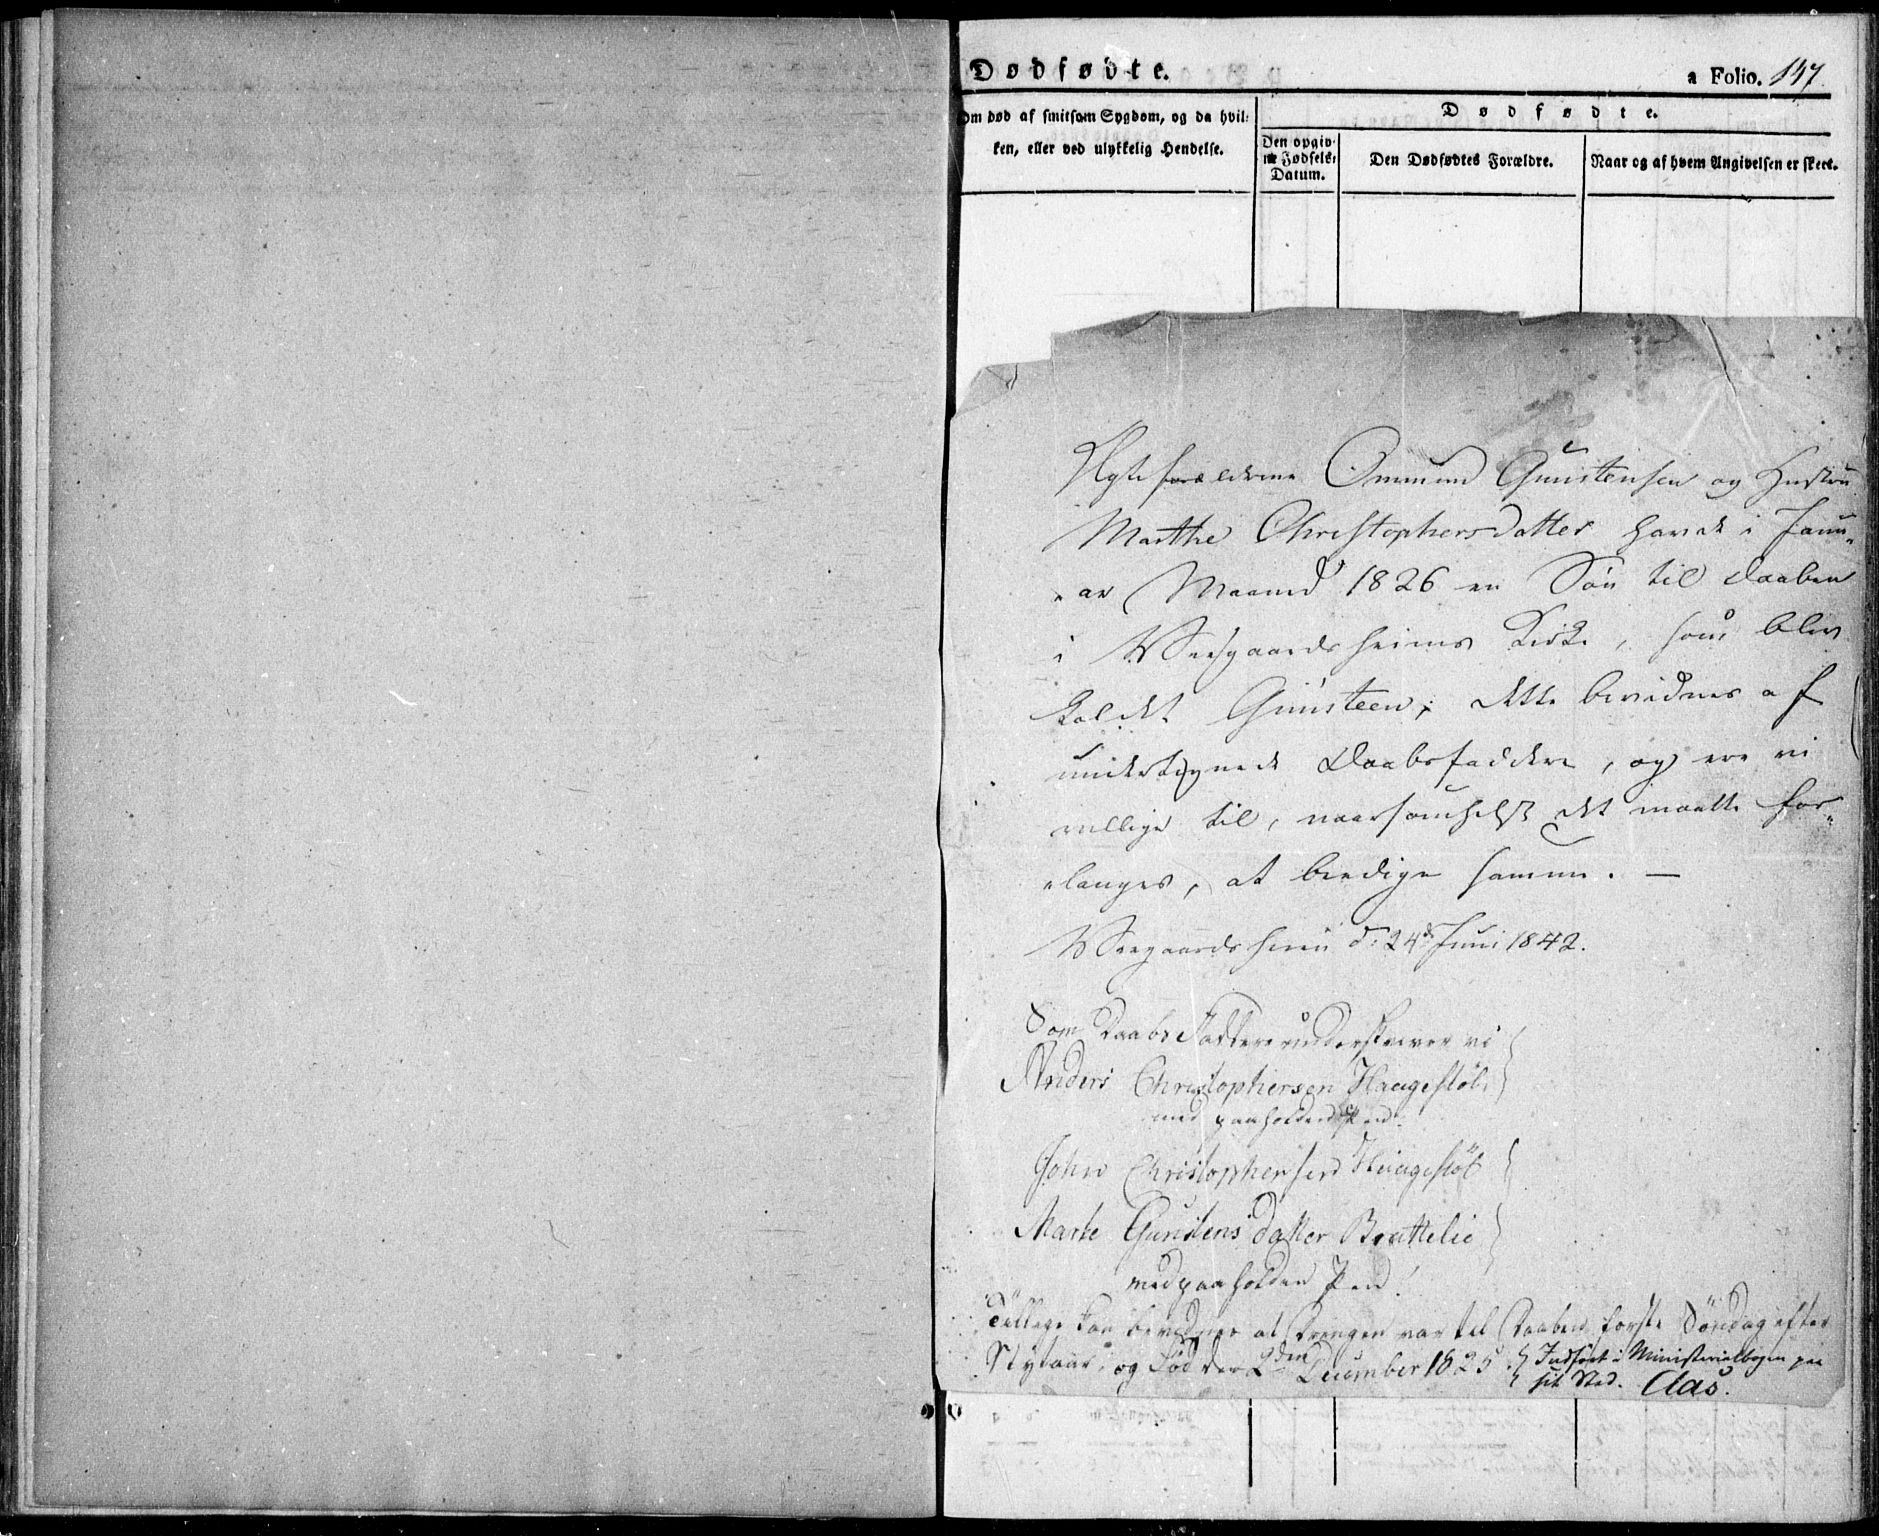 Dødfødte.
a Folio. 147.
Om død af smitsom Sygdom, og da hvil-
ken, eller ved ulykkelig Hendelse.
Dødfødte.
Den opgiv-
ne Fødsels-
Datum.
Den Dødfødtes Forældre.
Naar og af hvem Angivelsen er skeet.
Ægteforældrene Ommund Gunstensen og Hustru
Marthe Christophersdatter havde i Janu-
ar Maaned 1826 en Søn til Daaben
i Weegaardsheims Kirke, som blev
kaldet Gunsteen; dette bevidnes af
undertegnede Daabsfaddere, og ere vi
villige til, naarsomhelst det maatte for-
langes, at beedige samme. —
Weegaardsheim d: 24de Juni 1842.
Som Daabs Faddere underskriver vi
Anders Christophersen Haugestøl
med paaholden Pen
John Christophersen Haugestøl
Marte Gunstens datter Brattelie
med paaholden Pen!
Tillige kan bevidnes at Drengen var til Daaben første Søndag efter
Nytaar, og Fød den 2den December 1825.
Indført i Ministerialbogen paa
sit Sted. Aas.